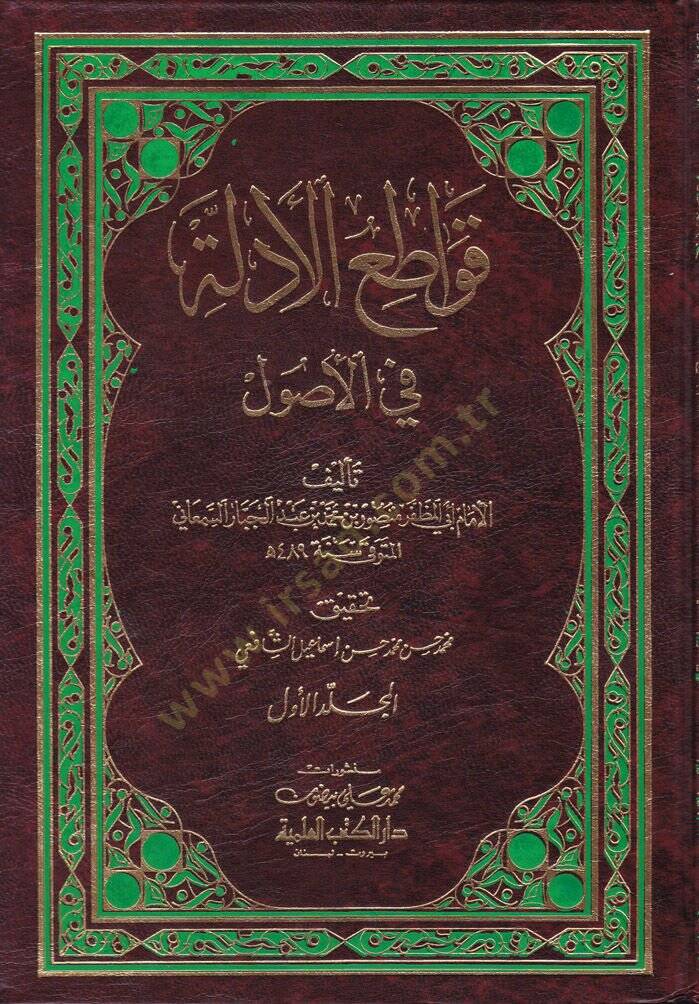 قواطع الأدلة
في الأصول
تأليف
الإمام أبي المظفر منصور بن محمد بن عبد الجبار السمعاني
المتوفى سنة ٤٨٩ هـ
تحقيق
محمد حسن محمد حسن إسماعيل الشافعي
المجلد الأول
منشورات
محمد علي بيضون
دار الكتب العلمية
بيروت - لبنان
www.irsad.com.tr